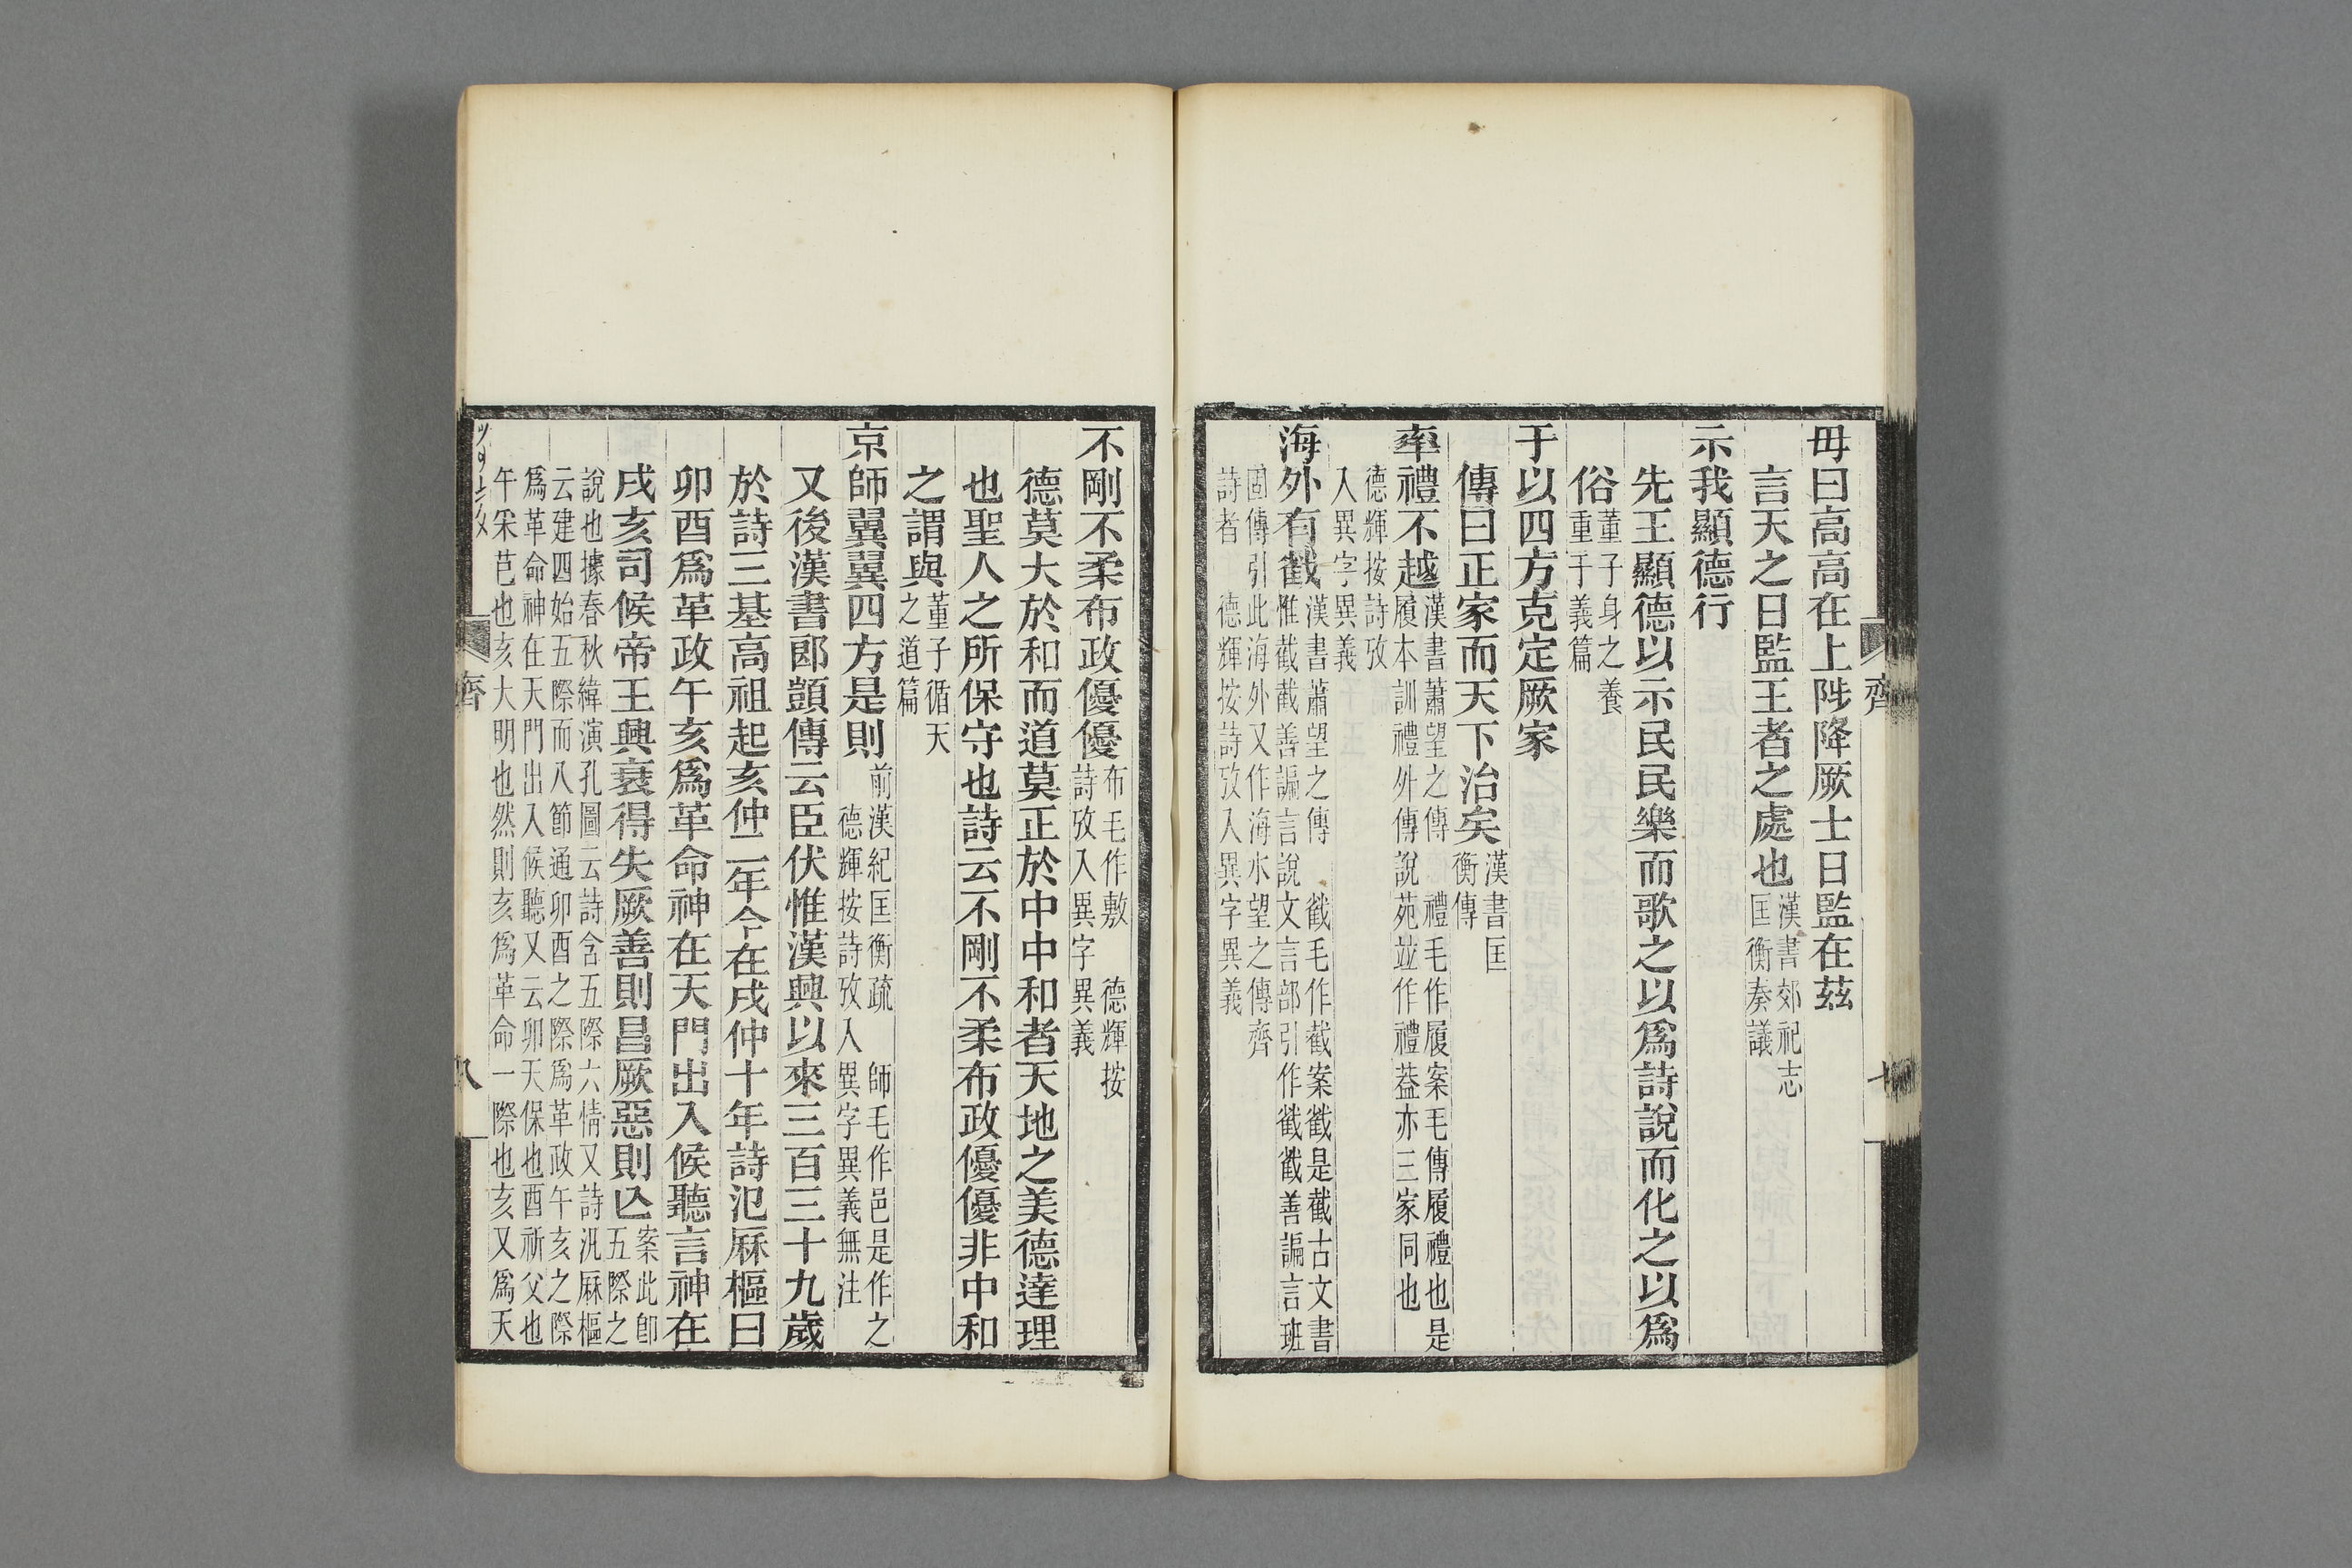 毋曰高高在上陟降厥士日監在茲
言天之日監王者之處也漢書郊祀志
匡衡奏議
示我顯德行
先王顯德以示民民樂而歌之以爲詩說而化之以爲
俗董子身之養
重于義篇
于以四方克定厥家
傳曰正家而天下治矣漢書匡
衡傳
率禮不越漢書蕭望之傳 禮毛作履案毛傳履禮也是
履本訓禮外傳說苑竝作禮葢亦三家同也
德輝按詩攷
入異字異義
海外有䘇漢書蕭望之傳 䘇毛作截案䘇是截古文書
惟截截善諞言說文言部引作䘇䘇善諞言班
固傳引此海外又作海水望之傳齊
詩者 德輝按詩攷入異字異義
齊
七
不剛不柔布政優優布毛作敷 德輝按
詩攷入異字異義
德莫大於和而道莫正於中中和者天地之美德達理
也聖人之所保守也詩云不剛不柔布政優優非中和
之謂與董子循天
之道篇
京師翼翼四方是則前漢紀匡衡疏 師毛作邑是作之
德輝按詩攷入異字異義無注
又後漢書郎顗傳云臣伏惟漢興以來三百三十九歲
於詩三基高祖起亥仲二年今在戌仲十年詩氾厤樞曰
卯酉爲革政午亥爲革命神在天門出入候聽言神在
戌亥司候帝王興衰得失厥善則昌厥惡則亾案此卽
五際之
說也據春秋緯演孔圖云詩含五際六情又詩汎厤樞
云建四始五際而八節通卯酉之際爲革政午亥之際
爲革命神在天門出入候聽又云卯天保也酉祈父也
午采芑也亥大明也然則亥爲革命一際也亥又爲天
齊
八